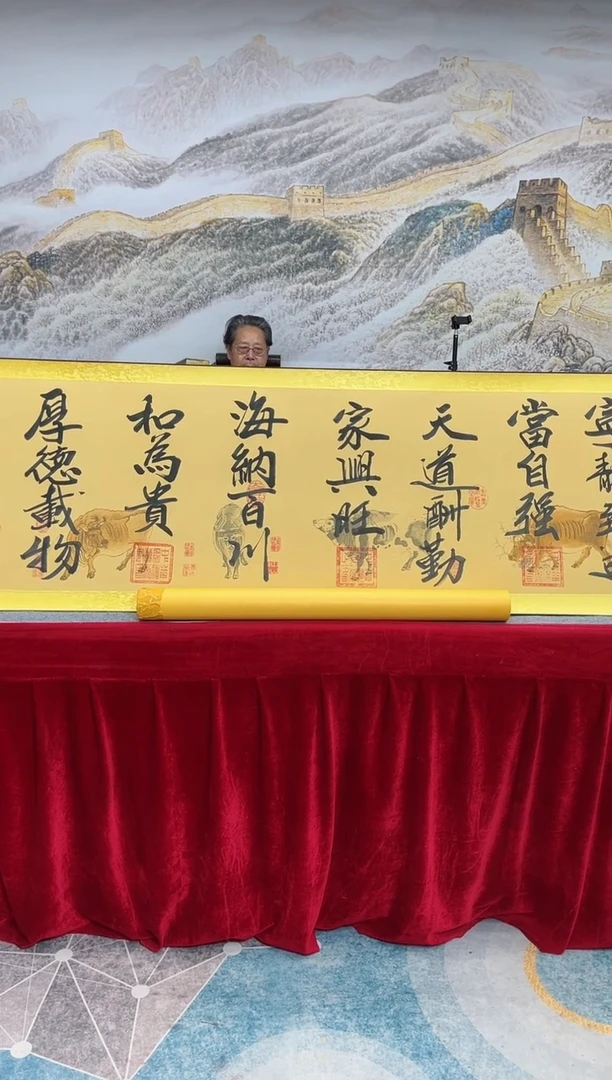 當自强
天道酬勤
家興旺
海納百川
和為貴
厚德載物